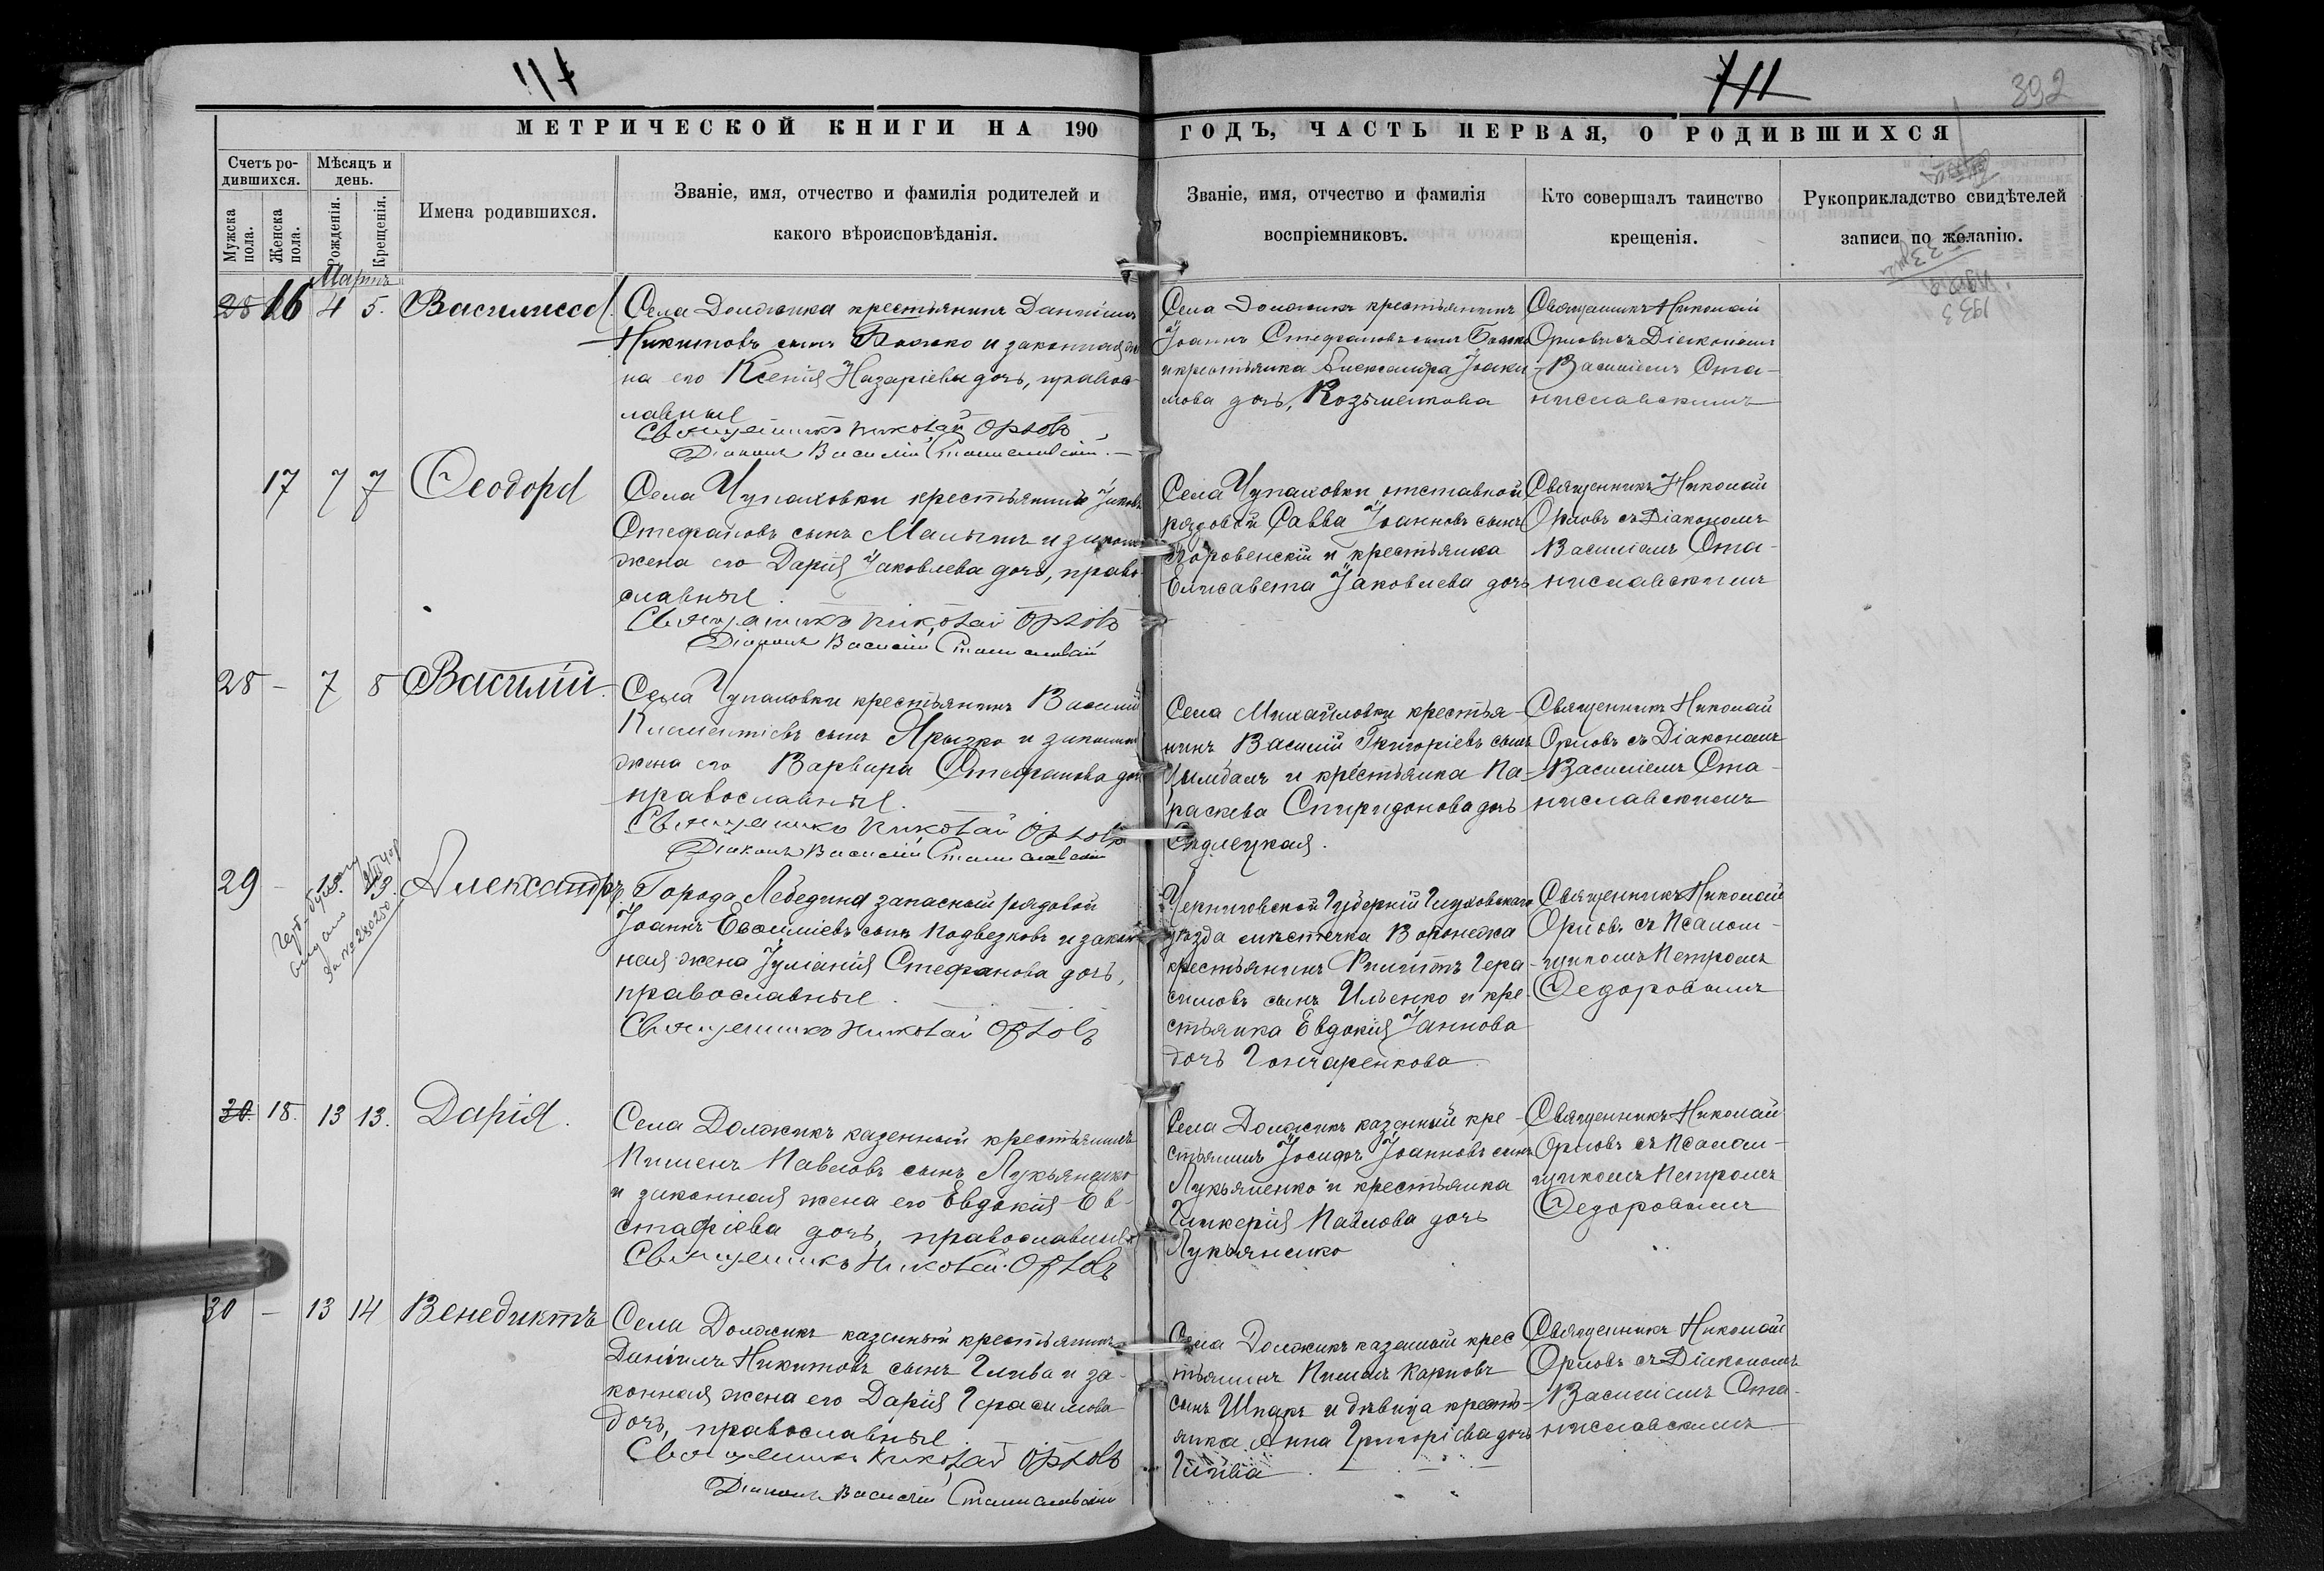 711
392
МЕТРИЧЕСКОЙ КНИГИ НА 190
ГОДЪ, ЧАСТЬ ПЕРВАЯ, О РОДИВШИХСЯ
Счетъ родившихся.
Мужска пола.
Женска пола.
Мѣсяцъ и день.
Рожденія.
Крещенія.
Имена родившихся.
Званіе, имя, отчество и фамилія родителей и
какого вѣроисповѣданія.
Званіе, имя, отчество и фамилія
воспріемниковъ.
Кто совершалъ таинство
крещенія.
Рукоприкладство свидѣтелей
записи по желанію.
Мартъ
28 16 4 5. Василисса
Села Должика крестьянинъ Даніилъ
Никитовъ сынъ Божко и законная же
на его Ксенія Назаріева дочь, правос
лавные
Священникъ Николай Орловъ
Діаконъ Василій Станиславскій.
Села Должикъ крестьянинъ
Іоаннъ Стефановъ сынъ Божко
и крестьянка Александра Іоаки
мова дочь, Козьменкова
Священникъ Николай
Орловъ съ Діакономъ
Василіемъ Ста-
ниславскимъ
17 7 7 Ѳеодора
Села Чупаховки крестьянинъ Іаковъ
Стефановъ сынъ Малышъ и закон
жена его Дарія Іаковлева дочь, право
славные
Священникъ Николай Орловъ
Діаконъ Василій Станиславскій
Села Чупаховки отставной
рядовой Савва Іоанновъ сынъ
Боровенскій и крестьянка
Елисавета Іаковлева дочь
Священникъ Николай
Орловъ съ Діакономъ
Василіемъ Ста-
ниславскимъ
28 - 7 8 Василій.
Села Чупаховки крестьянинъ Василій
Климентіевъ сынъ Ярызко и законная
жена его Варвара Стефанова доч
православные.
Священникъ Николай Орловъ
Діаконъ Василій Станиславскій
Села Михайловки крестья-
нинъ Василій Григоріевъ сынъ
Цымбалъ и крестьянка Па-
раскева Спиридонова дочь
Сѣдлецкая.
Священникъ Николай
Орловъ съ Діакономъ
Василіемъ Ста-
ниславскимъ
29 - 13. 13. Александръ.
280250
Города Лебедина запасный рядовой
Іоаннъ Евѳиміевъ сынъ Подвезковъ и закон
ная жена Іуліанія Стефанова дочь,
православные.
Священникъ Николай Орловъ
Черниговской Губерніи Глуховскаго
уѣзда мѣстечка Воронежа
крестьянинъ Филиппъ Гера-
симовъ сынъ Ильенко и кре-
стьянка Евдокія Іаннова
дочь Гончаренкова
Священникъ Николай
Орловъ съ Псалом-
щикомъ Петромъ
Ѳедоровымъ
30. 18. 13 13. Дарія.
Села Должикъ казенный крестьянинъ
Пименъ Павловъ сынъ Лукьяненко
и законная жена его Евдокія Ев-
стафіева дочь, православные
Священникъ Николай Орловъ
Села Должикъ казенный кре-
стьянинъ Іосифъ Іоанновъ сынъ
Лукьяненко и крестьянка
Гликерія Павлова дочь
Лукьяненко
Священникъ Николай
Орловъ съ Псалом-
щикомъ Петромъ
Ѳедоровымъ
30 - 13 14 Венедиктъ
Села Должикъ казенный крестьянинъ
Даніилъ Никитовъ сынъ Глива и за-
конная жена его Дарія Герасимова
дочь, православные.
Священникъ Николай Орловъ
Діаконъ Василій Станиславскій
Села Должикъ казенный крес
тьянинъ Пименъ Карповъ
сынъ Шпакъ и дѣвица кресть-
янка Анна Григоріева дочь
Глива
Священникъ Николай
Орловъ съ Діакономъ
Василіемъ Ста-
ниславскимъ